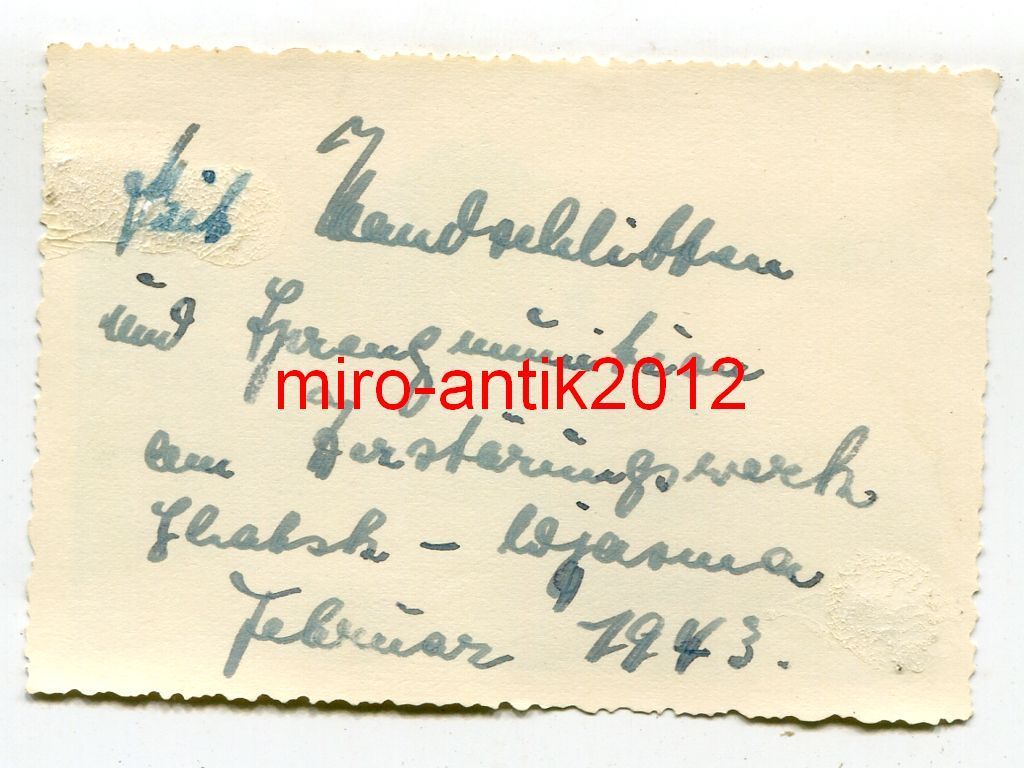 Mit Handschlitten
und Sprengmunition
miro-antik2012
am Zerstörungswerk
Ghatsk - Wjasma
Februar 1943.